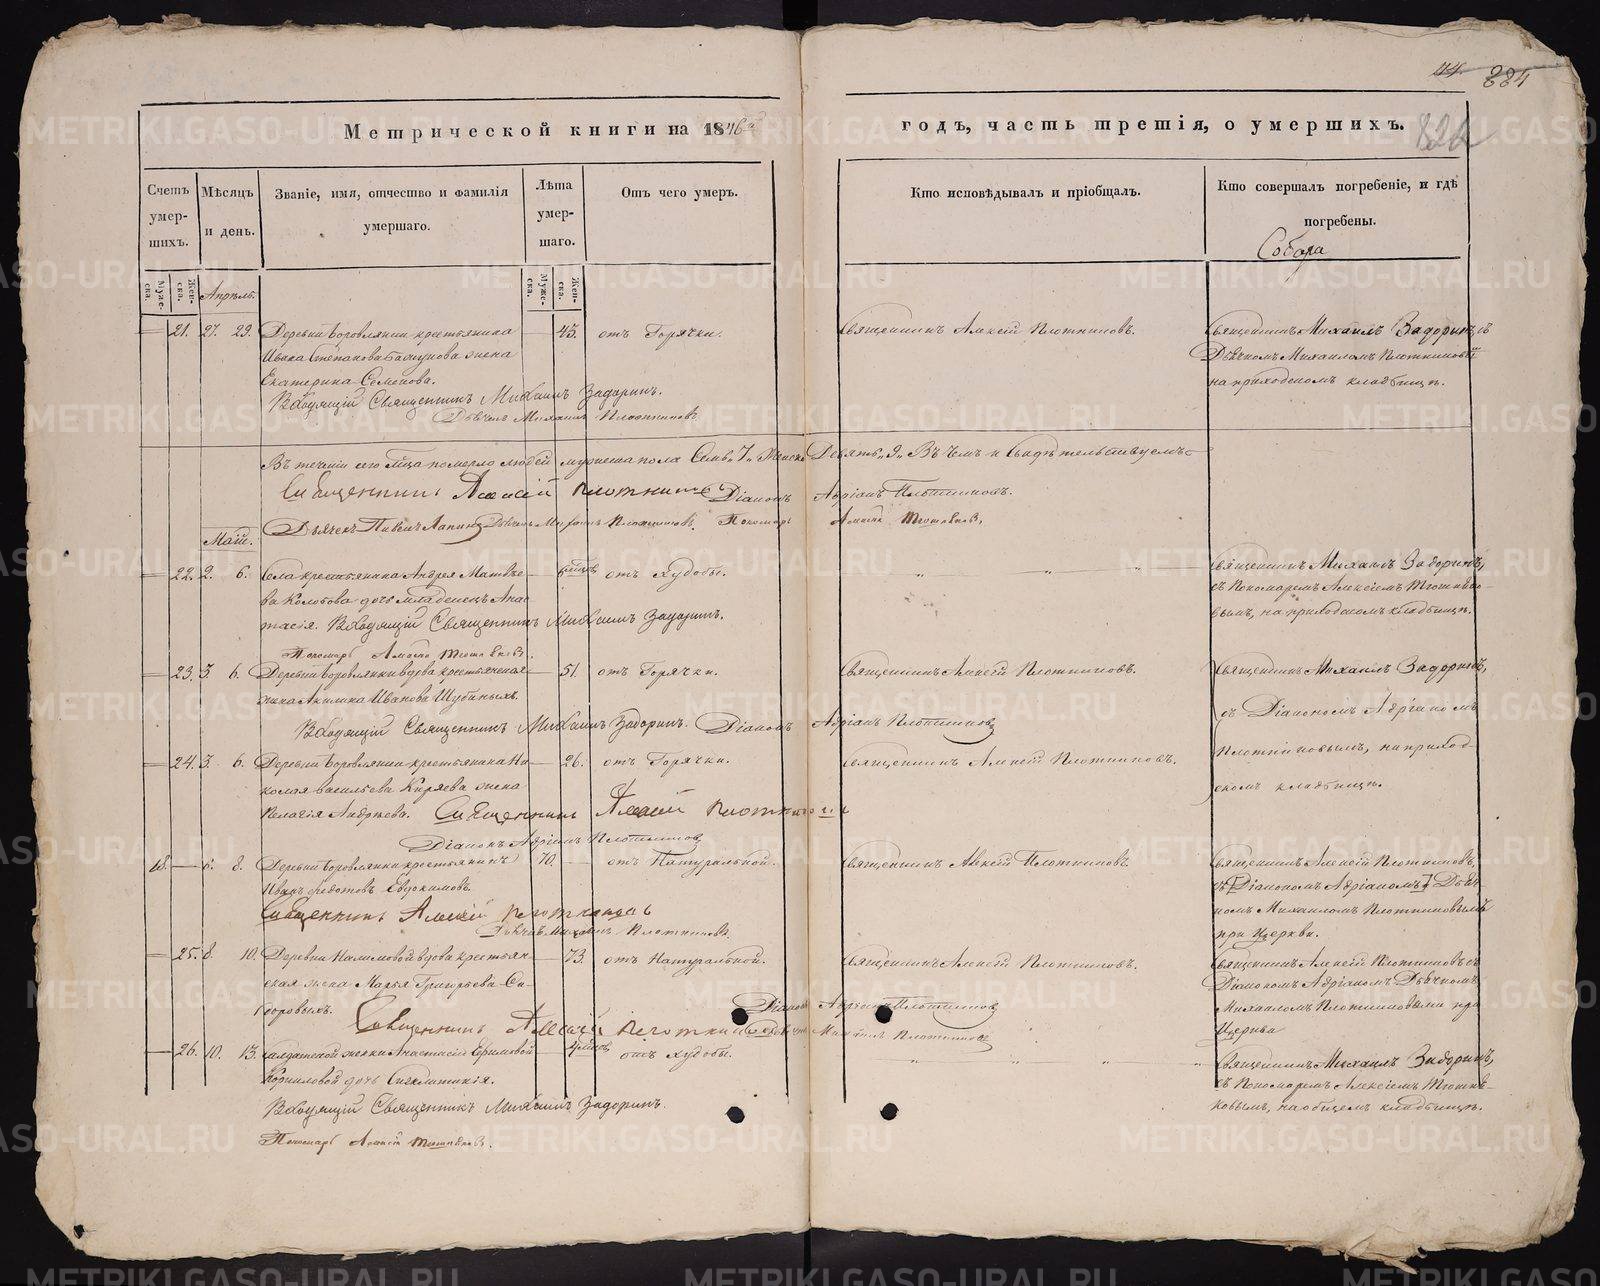 44. 884
Метрической книги на 1846й годъ, часть третія, о умершихъ.
826
Счетъ умершихъ.
Мѣсяцъ и день.
Званіе, имя, отчество и фамилія умершаго.
Лѣта умершаго.
Отъ чего умеръ.
Кто исповѣдывалъ и пріобщалъ.
Кто совершалъ погребеніе, и гдѣ погребены.
Собора
Мужеска. Женска.
Апрѣль.
Мужеска. Женска.
— 21. 27. 29. Деревни Боровлянки крестьянина — 45. отъ Горячки. Священникъ Алексій Плотниковъ. Священникъ Михаилъ Задоринъ, съ
Ивана Степанова жена Дьячкомъ Михаиломъ Плотниковымъ
Екатерина Семенова. на приходскомъ кладбищѣ.
Входящій Священникъ Михаилъ Задоринъ.
Дьячекъ Михаилъ Плотниковъ.
Въ теченіи сего м͠ца померло людей мужеска пола Семь „7„ Женска Девять „9„ Въ чемъ и свидѣтельствуемъ
Священникъ Алексій Плотниковъ Діаконъ Адріанъ Плотниковъ.
Дьячекъ Павелъ Дьячекъ Михаилъ Плотниковъ. Пономарь Алексій
Май.
— 22. 2. 6. Села крестьянина Андрея Матвѣе- — 6 мѣсц. отъ Худобы. „ „ „ Священникъ Михаилъ Задоринъ,
ва Колотова дочь младенецъ Анас- съ Пономаремъ Алексіемъ
тасія. Входящій Священникъ Михаилъ Задоринъ. вымъ, на приходскомъ кладбищѣ.
Пономарь Алексій
— 23. 3. 6. Деревни Боровлянки вдова крестьянская — 51. отъ Горячки. Священникъ Алексій Плотниковъ. Священникъ Михаилъ Задоринъ,
жена Акилина Иванова Шубиныхъ. съ Діакономъ Адріаномъ
Входящій Священникъ Михаилъ Задоринъ. Діаконъ Адріанъ Плотниковъ
Плотниковымъ, на приход-
— 24. 3. 6. Деревни Боровлянки крестьянина Ни- — 26. отъ Горячки. Священникъ Алексій Плотниковъ.
колая Васильева Киряева жена скомъ кладбищѣ.
Пелагія Андреева. Священникъ Алексій Плотниковъ
Діаконъ Адріанъ Плотниковъ
18. — 6. 8. Деревни Боровлянки крестьянинъ 70. — отъ Натуральной. Священникъ Алексій Плотниковъ Священникъ Алексій Плотниковъ,
Иванъ Федотовъ Евдокимовъ. съ Діакономъ Адріаномъ Дьяч-
Священникъ Алексій Плотниковъ комъ Михаиломъ Плотниковымъ
Дьячекъ Михаилъ Плотниковъ. при Церкви.
— 25. 8. 10. Деревни Налимовой вдова крестьян- — 73. отъ Натуральной. Священникъ Алексій Плотниковъ. Священникъ Алексій Плотниковъ съ
ская жена Марья Григорьева Си- Діакономъ Адріаномъ Дьячкомъ
доровыхъ. Діаконъ Адріанъ Плотниковъ Михаиломъ Плотниковыми при
Священникъ Алексій Плотниковъ Михаилъ Плотниковъ Церкви
— 26. 10. 13. Салдатской женки Анастасіи Ефимовой — 4 мѣсц. отъ худобы. „ „ „ Священникъ Михаилъ Задоринъ,
Корниловой дочь Синклитикія. съ Пономаремъ Алексіемъ
Входящій Священникъ Михаилъ Задоринъ. ковымъ, на общемъ кладбищѣ.
Пономарь Алексій
METRIKI.GASO-URAL.RU